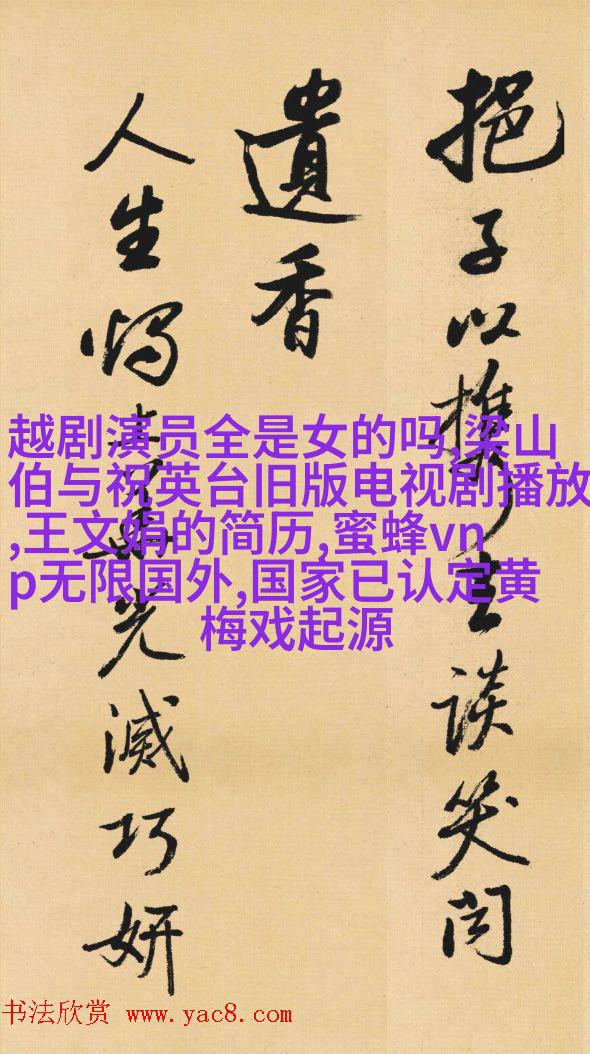 挹子以談笑
遺香
人生燭上華光滅巧妍
越剧演员全是女的吗,梁山
伯与祝英台旧版电视剧播放
,王文娟的简历,蜜蜂vn
p无限国外,国家已认定黄
梅戏起源
书法欣赏 www.yac8.com